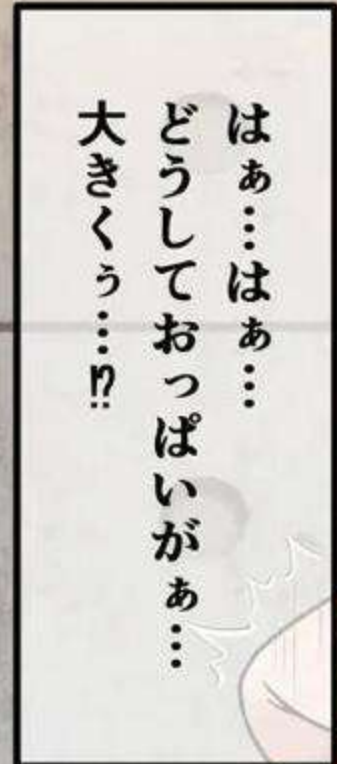 はぁ…はぁ…
どうしておっぱいがぁ…
大きくぅ…!?